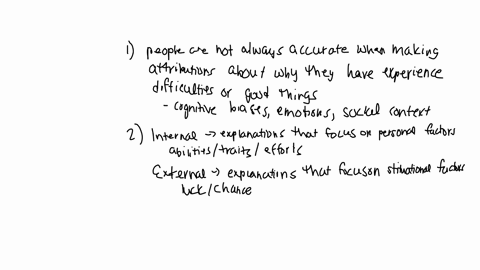 1) people are not always accurate when making
attributions about why they have experience
difficulties or good things
- cognitive biases, emotions, social context
2) Internal → explanations that focus on personal factors
abilities/traits/efforts
External → explanations that focus on situational factors
luck/chance